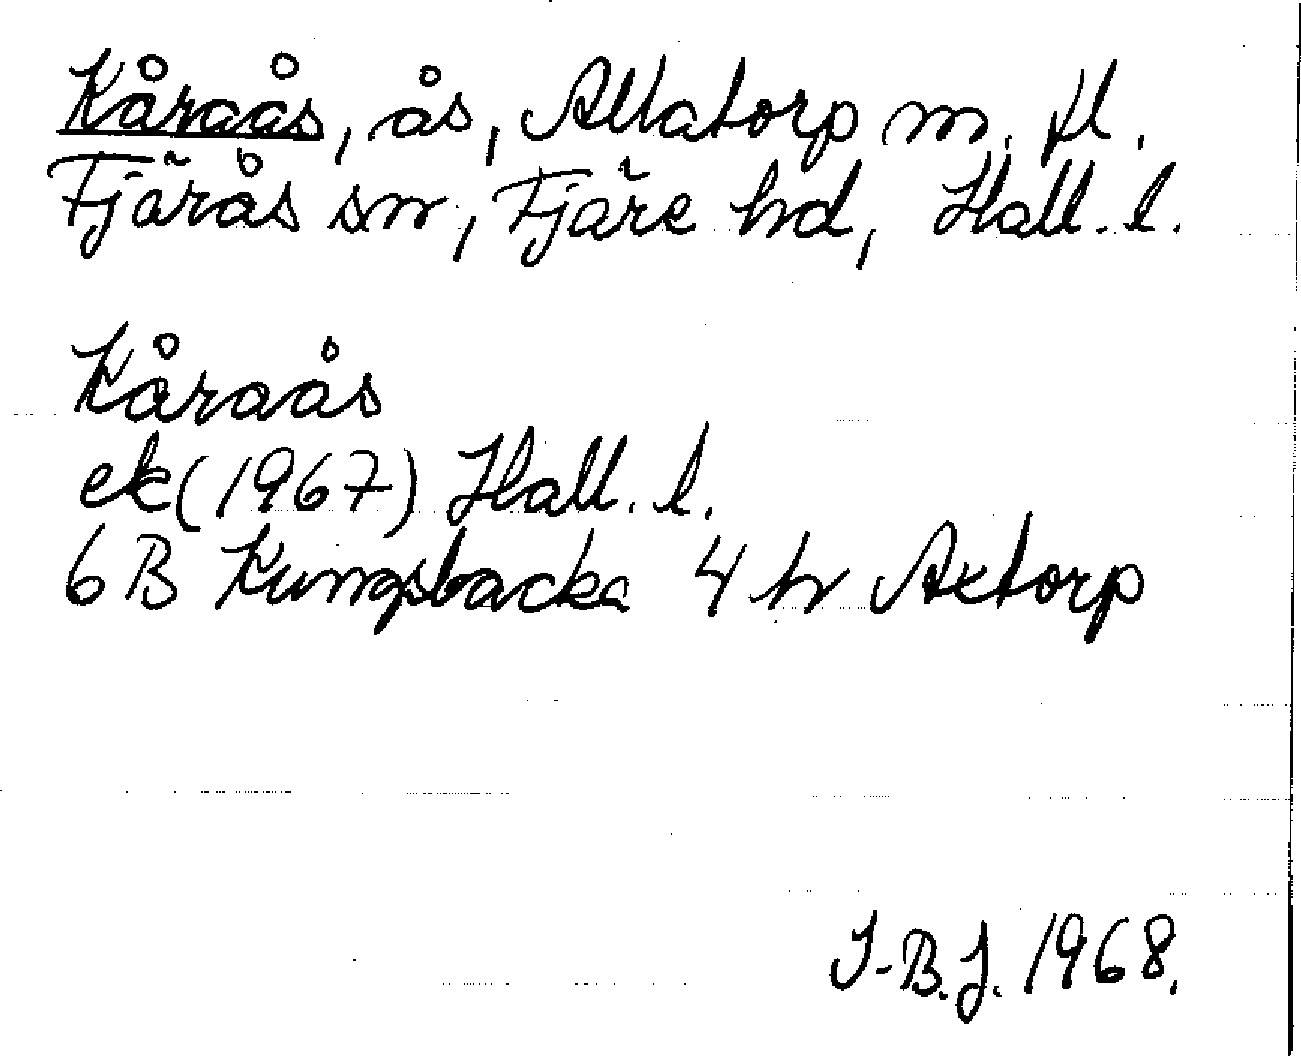 Kåraås, ås, Allatorp m. fl.
Fjärås sn, Fjäre hd, Hall. l.
Kåraås
ek (1967) Hall. l.
6 B Kungsbacka 4 h Axtorp
I-B.J. 1968.